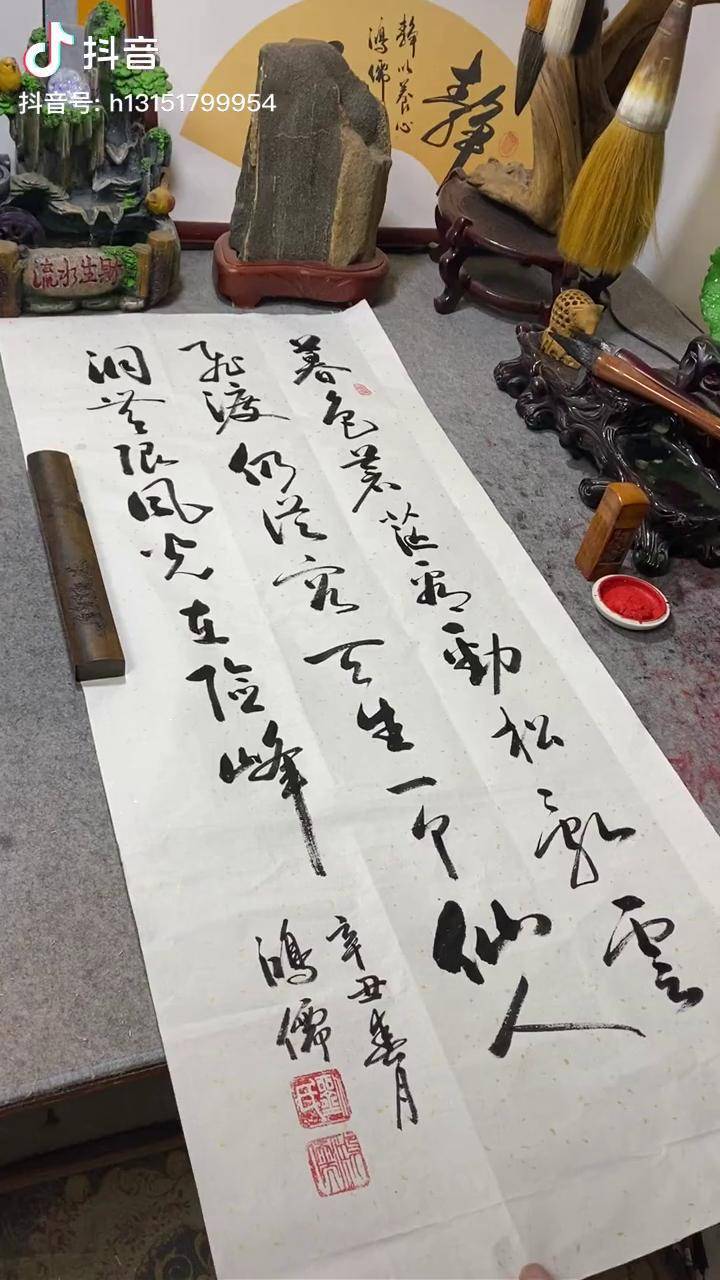 抖音
抖音号: h13151799954
静以养心
鸿儒
静
流水生财
暮色苍茫看劲松乱雲
飛渡仍从容天生一个仙人
洞无限风光在险峰
辛丑春月
鸿儒